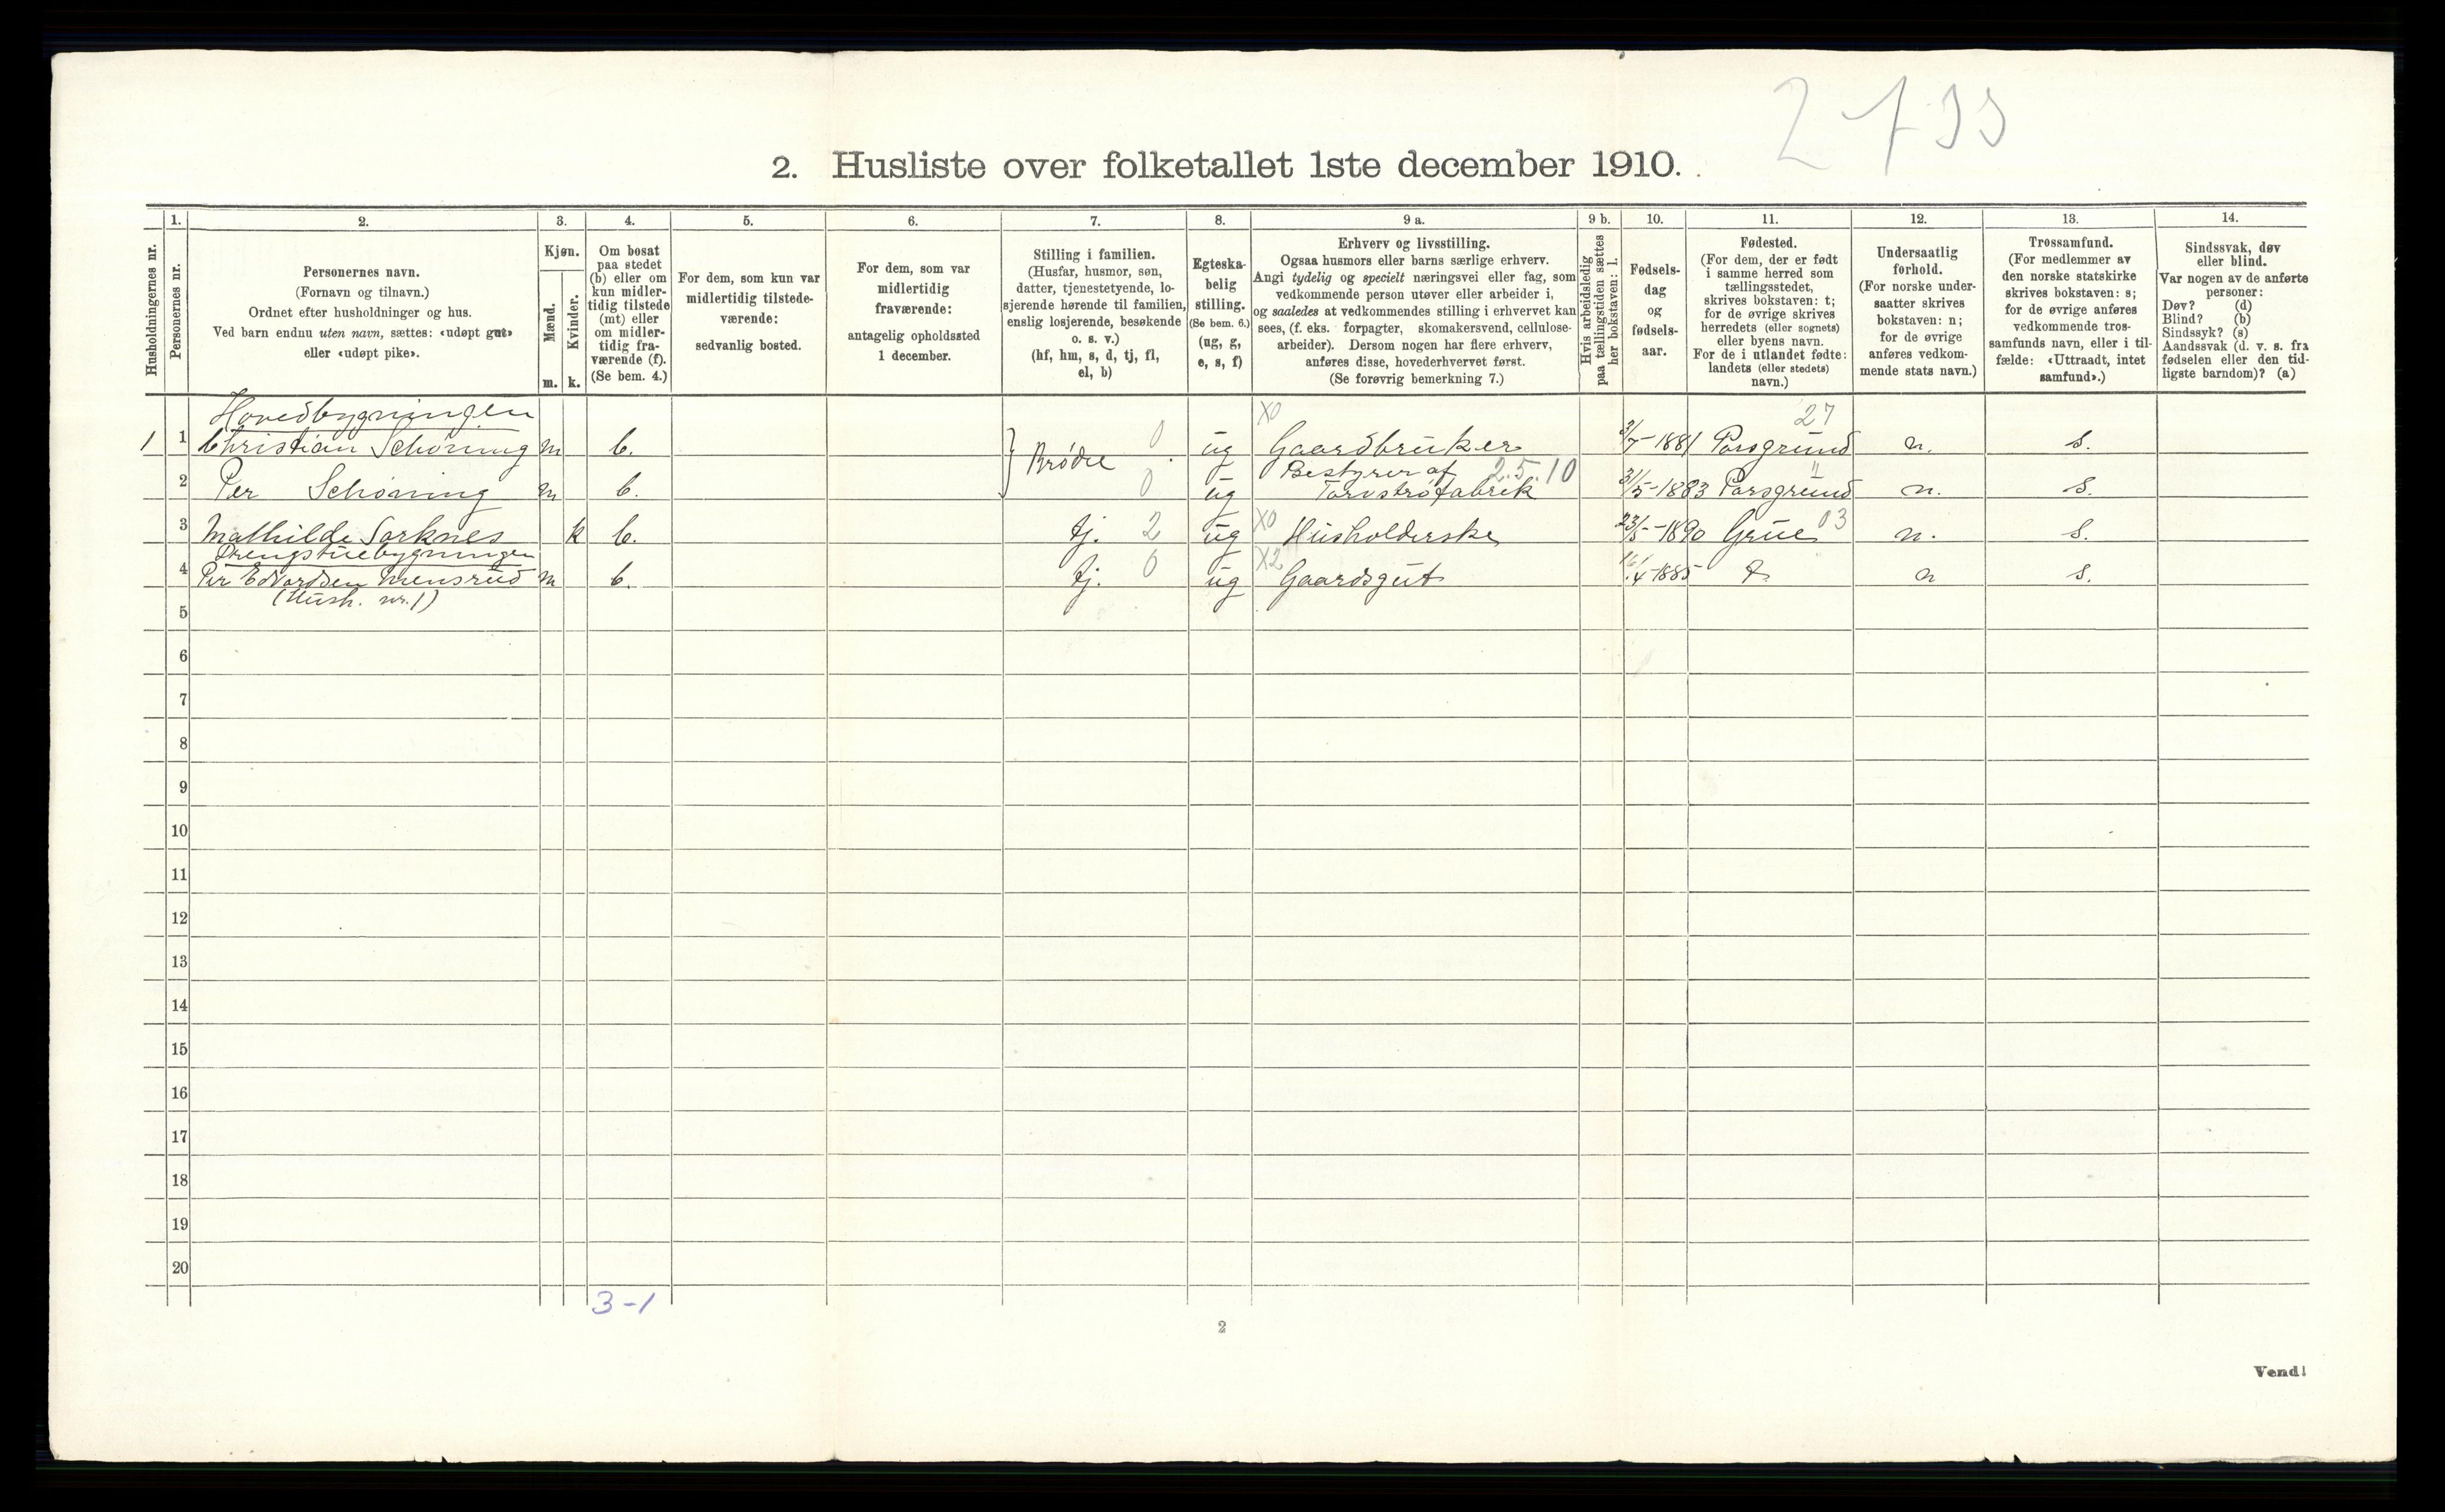 2 733
2. Husliste over folketallet 1ste december 1910.
Husholdningernes nr.
1.
Personernes nr.
2.
Personernes navn.
(Fornavn og tilnavn.)
Ordnet efter husholdninger og hus.
Ved barn endnu uten navn, sættes: «udøpt gut»
eller «udøpt pike».
3.
Kjøn.
Mænd.
Kvinder.
m. k.
4.
Om bosat
paa stedet
(b) eller om
kun midler-
tidig tilstede
(mt) eller
om midler-
tidig fra-
værende (f).
(Se bem. 4.)
5.
For dem, som kun var
midlertidig tilstede-
værende:
sedvanlig bosted.
6.
For dem, som var
midlertidig
fraværende:
antagelig opholdssted
1 december.
7.
Stilling i familien.
(Husfar, husmor, søn,
datter, tjenestetyende, lo-
sjerende hørende til familien,
enslig losjerende, besøkende
o. s. v.)
(hf, hm, s, d, tj, fl,
el, b)
8.
Egteska-
belig
stilling.
(Se bem. 6.)
(ug, g,
e, s, f)
9 a.
Erhverv og livsstilling.
Ogsaa husmors eller barns særlige erhverv.
Angi tydelig og specielt næringsvei eller fag, som
vedkommende person utøver eller arbeider i,
og saaledes at vedkommendes stilling i erhvervet kan
sees, (f. eks. forpagter, skomakersvend, cellulose-
arbeider). Dersom nogen har flere erhverv,
anføres disse, hovederhvervet først.
(Se forøvrig bemerkning 7.)
9 b.
Hvis arbeidsledig
paa tællingstiden sættes
her bokstaven: l.
10.
Fødsels-
dag
og
fødsels-
aar.
11.
Fødested.
(For dem, der er født
i samme herred som
tællingsstedet,
skrives bokstaven: t;
for de øvrige skrives
herredets (eller sognets)
eller byens navn.
For de i utlandet fødte:
landets (eller stedets)
navn.)
12.
Undersaatlig
forhold.
(For norske under-
saatter skrives
bokstaven: n;
for de øvrige
anføres vedkom-
mende stats navn.)
13.
Trossamfund.
(For medlemmer av
den norske statskirke
skrives bokstaven: s;
for de øvrige anføres
vedkommende tros-
samfunds navn, eller i til-
fælde: «Uttraadt, intet
samfund».)
14.
Sindssvak, døv
eller blind.
Var nogen av de anførte
personer:
Døv? (d)
Blind? (b)
Sindssyk? (s)
Aandssvak (d. v. s. fra
fødselen eller den tid-
ligste barndom)? (a)
Hovedbygningen X0 27
1 1 Christian Schøning m b. Brødre 0 ug Gaardbruker 3/7-1881 Porsgrund n. s.
2 Per Schøning m b. 0 ug Bestyrer af Torvstrøfabrik 2.5.10 31/5-1883 Porsgrund " n. s.
3 Mathilde Sorknes k b. tj. 2 ug X0 Husholderske 23/5-1890 Grue 03 n. s.
Drengstuebygningen
4 Per Edvardsen m b. tj. 0 ug X2 Gaardsgut 16/4-1885 t n s.
(Hush. nr. 1)
5
6
7
8
9
10
11
12
13
14
15
16
17
18
19
20
3-1
2
Vend!